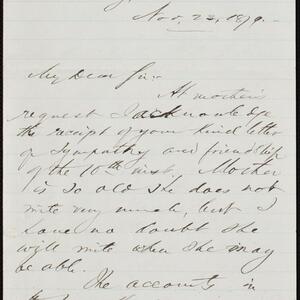 Nov. 23, 1879.
My Dear Sir:
At mother's
request I acknowledge
the receipt of your kind letter
of sympathy and friendship
of the 10th inst. Mother
is so old she does not
write very much, but I
have no doubt she
will write when she may
be able.
The accounts in